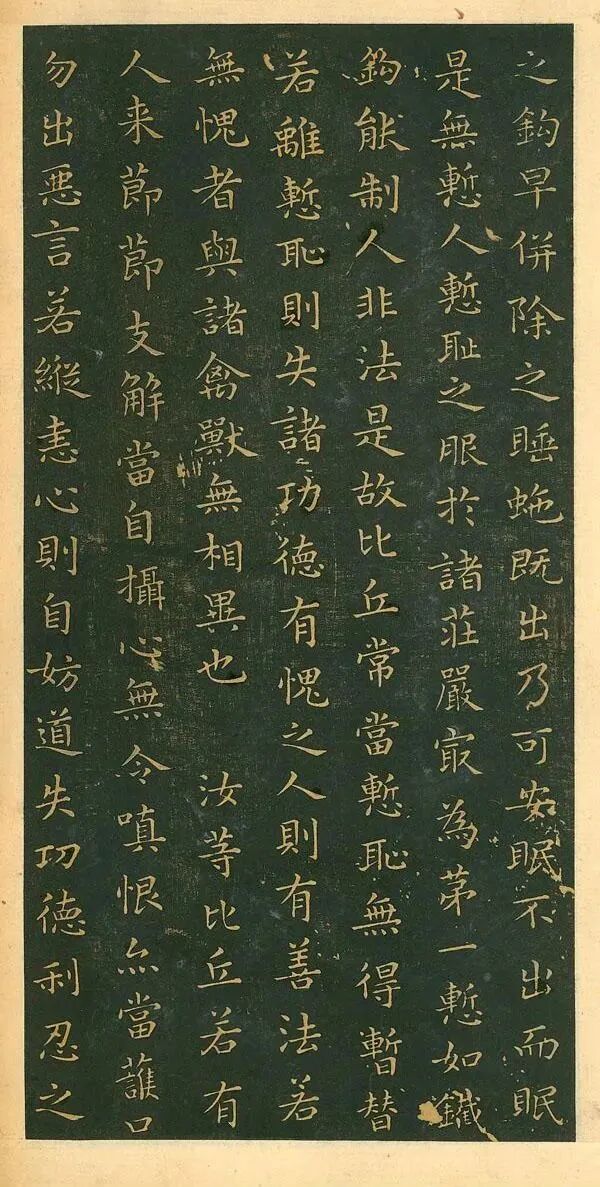 之鈎早併除之睡虵既出乃可安眠不出而眠
是無慙人慙耻之服於諸莊嚴㝡為苐一慙如鐵
鈎能制人非法是故比丘常當慙恥無得暫替
若離慙恥則失諸功德有愧之人則有善法若
無愧者與諸禽獸無相異也 汝等比丘若有
人来節節支解當自攝心無令嗔恨亦當護口
勿出惡言若縱恚心則自妨道失功德利忍之